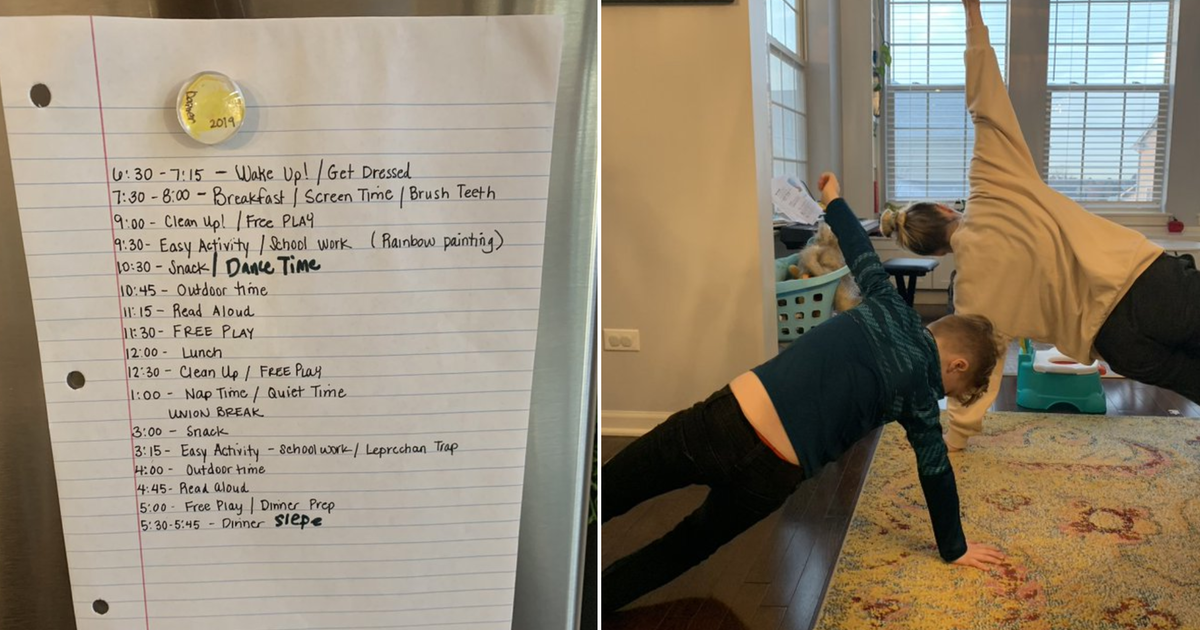 Donovan
2019
6:30 - 7:15 - Wake Up! / Get Dressed
7:30 - 8:00 - Breakfast / Screen Time / Brush Teeth
9:00 - Clean Up! / Free PLAY
9:30 - Easy Activity / School work (Rainbow painting)
10:30 - Snack / Dance Time
10:45 - Outdoor time
11:15 - Read Aloud
11:30 - FREE PLAY
12:00 - Lunch
12:30 - Clean Up / FREE PLAY
1:00 - Nap Time / Quiet Time
UNION BREAK
3:00 - Snack
3:15 - Easy Activity - School work / Leprechan Trap
4:00 - Outdoor time
4:45 - Read aloud
5:00 - Free Play / Dinner Prep
5:30-5:45 - Dinner slepe